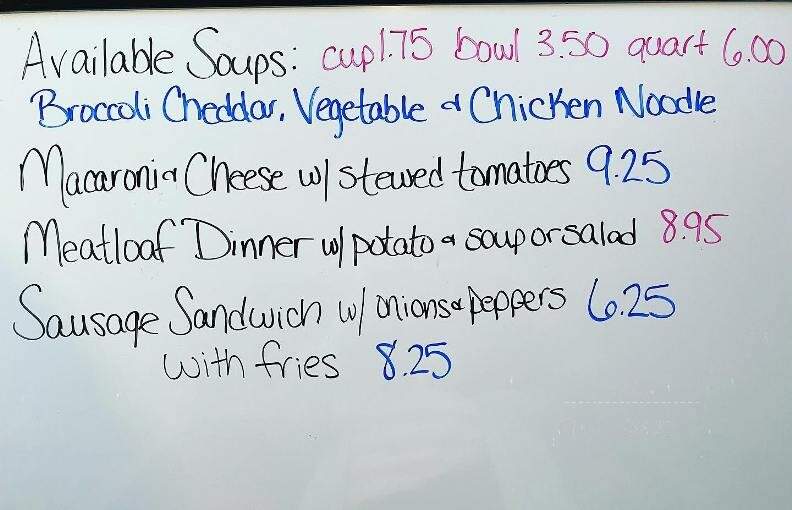 Available Soups: cup 1.75 bowl 3.50 quart 6.00
Broccoli Cheddar, Vegetable & Chicken Noodle
Macaroni & Cheese w/ stewed tomatoes 9.25
Meatloaf Dinner w/ potato & soup or salad 8.95
Sausage Sandwich w/ onions & peppers 6.25
with fries 8.25